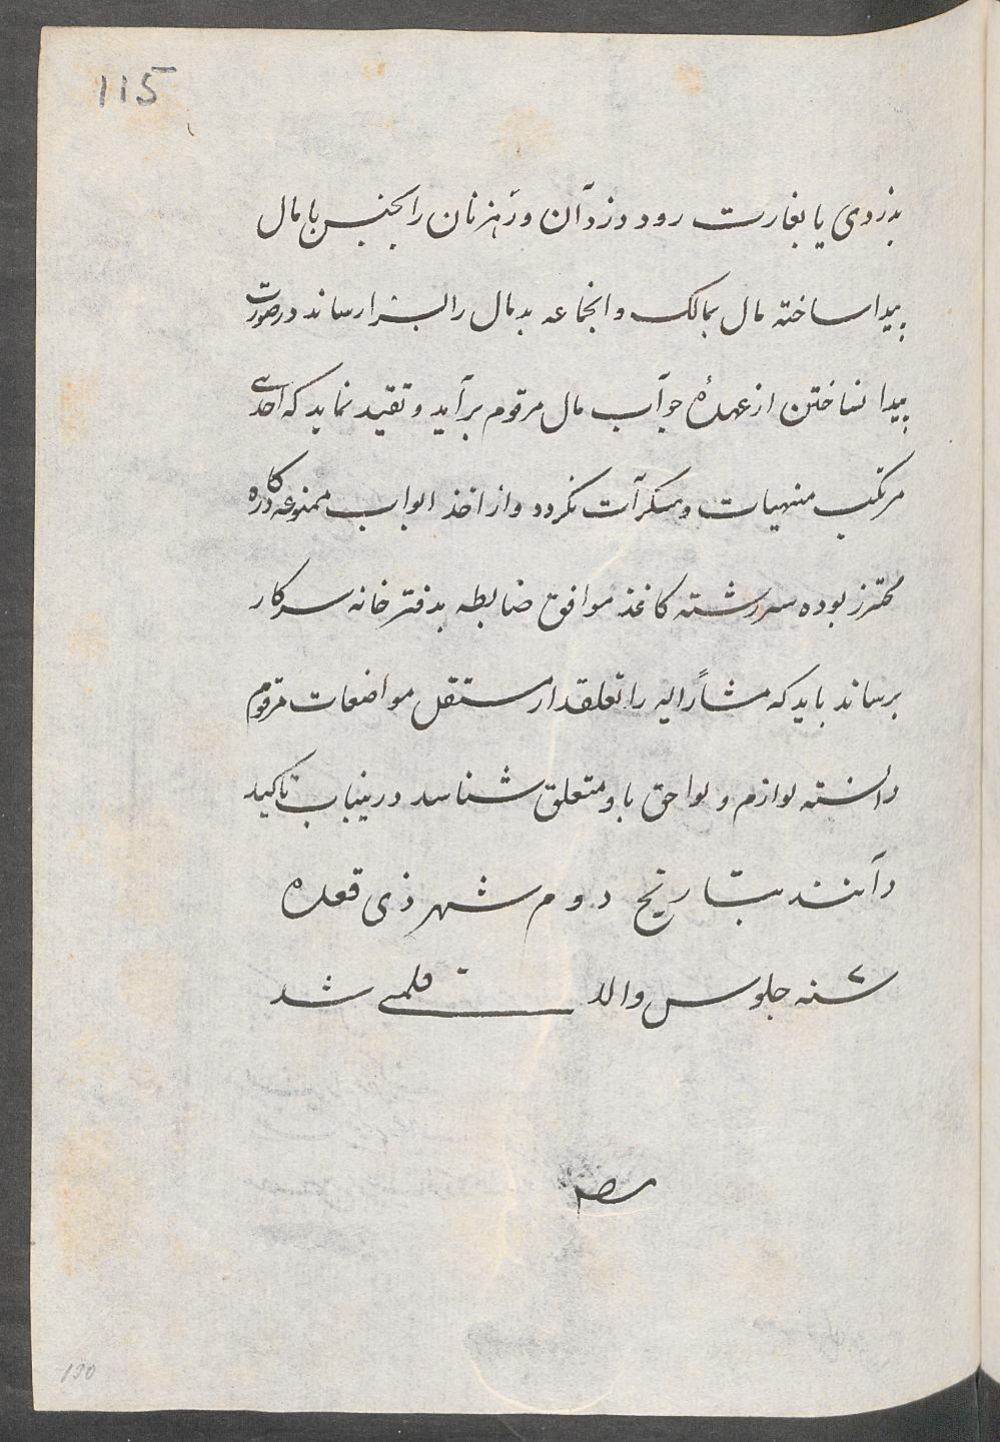 115
بدزدی یا بغارت رود دزدان و رهزنان را بجنس با مال
پیدا ساخته مال بمالک و انجماعه بدمال را بسزا رساند در صورت
پیدا نساختن از عهدهٔ جواب مال مرقوم برآید و تقید نماید که احدے
مرتکب منهیات و مسکرات نکردد و از اخذ ابواب ممنوعه
محترز بوده سررشته کاغذ موافق ضابطه بدفترخانه سرکار
برساند باید که مشارالیه را تعلقدار مستقل مواضعات مرقوم
دانسته لوازم و لواحق باو متعلق شناسد درینباب تاکید
دانند بتاریخ دوم شهر ذی قعده
سنه جلوس والا قلمے شد
130